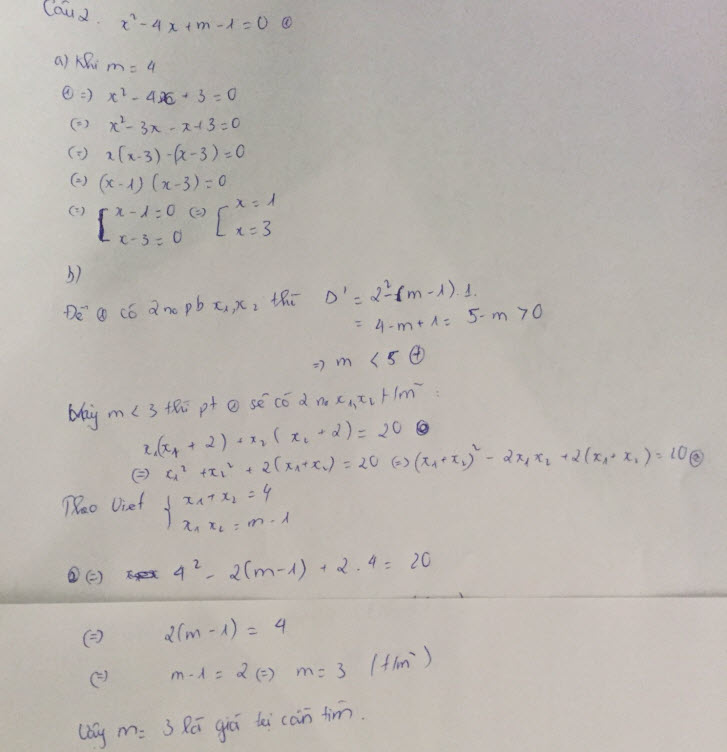 Câu 2. x² - 4x + m - 1 = 0 ①
a) Khi m = 4
① => x² - 4x + 3 = 0
(=) x² - 3x - x + 3 = 0
(=) x(x-3) - (x-3) = 0
(=) (x-1) (x-3) = 0
(=) [ x - 1 = 0 (=) [ x = 1
x - 3 = 0 x = 3
b)
Để ① có 2 no pb x₁, x₂ thì Δ' = 2² - (m-1).1.
= 4 - m + 1 = 5 - m > 0
=> m < 5 (+)
Vậy m < 3 thì pt ① sẽ có 2 no x₁, x₂ t/m :
x₁(x₁ + 2) + x₂(x₂ + 2) = 20 ②
(=) x₁² + x₂² + 2(x₁+x₂) = 20 (=) (x₁+x₂)² - 2x₁x₂ + 2(x₁+x₂) = 20 ②
Theo Viet { x₁ + x₂ = 4
x₁ x₂ = m - 1
② (=) 4² - 2(m-1) + 2.4 = 20
(=) 2(m-1) = 4
(=) m - 1 = 2 (=) m = 3 (t/m)
Vậy m = 3 là giá trị cần tìm.